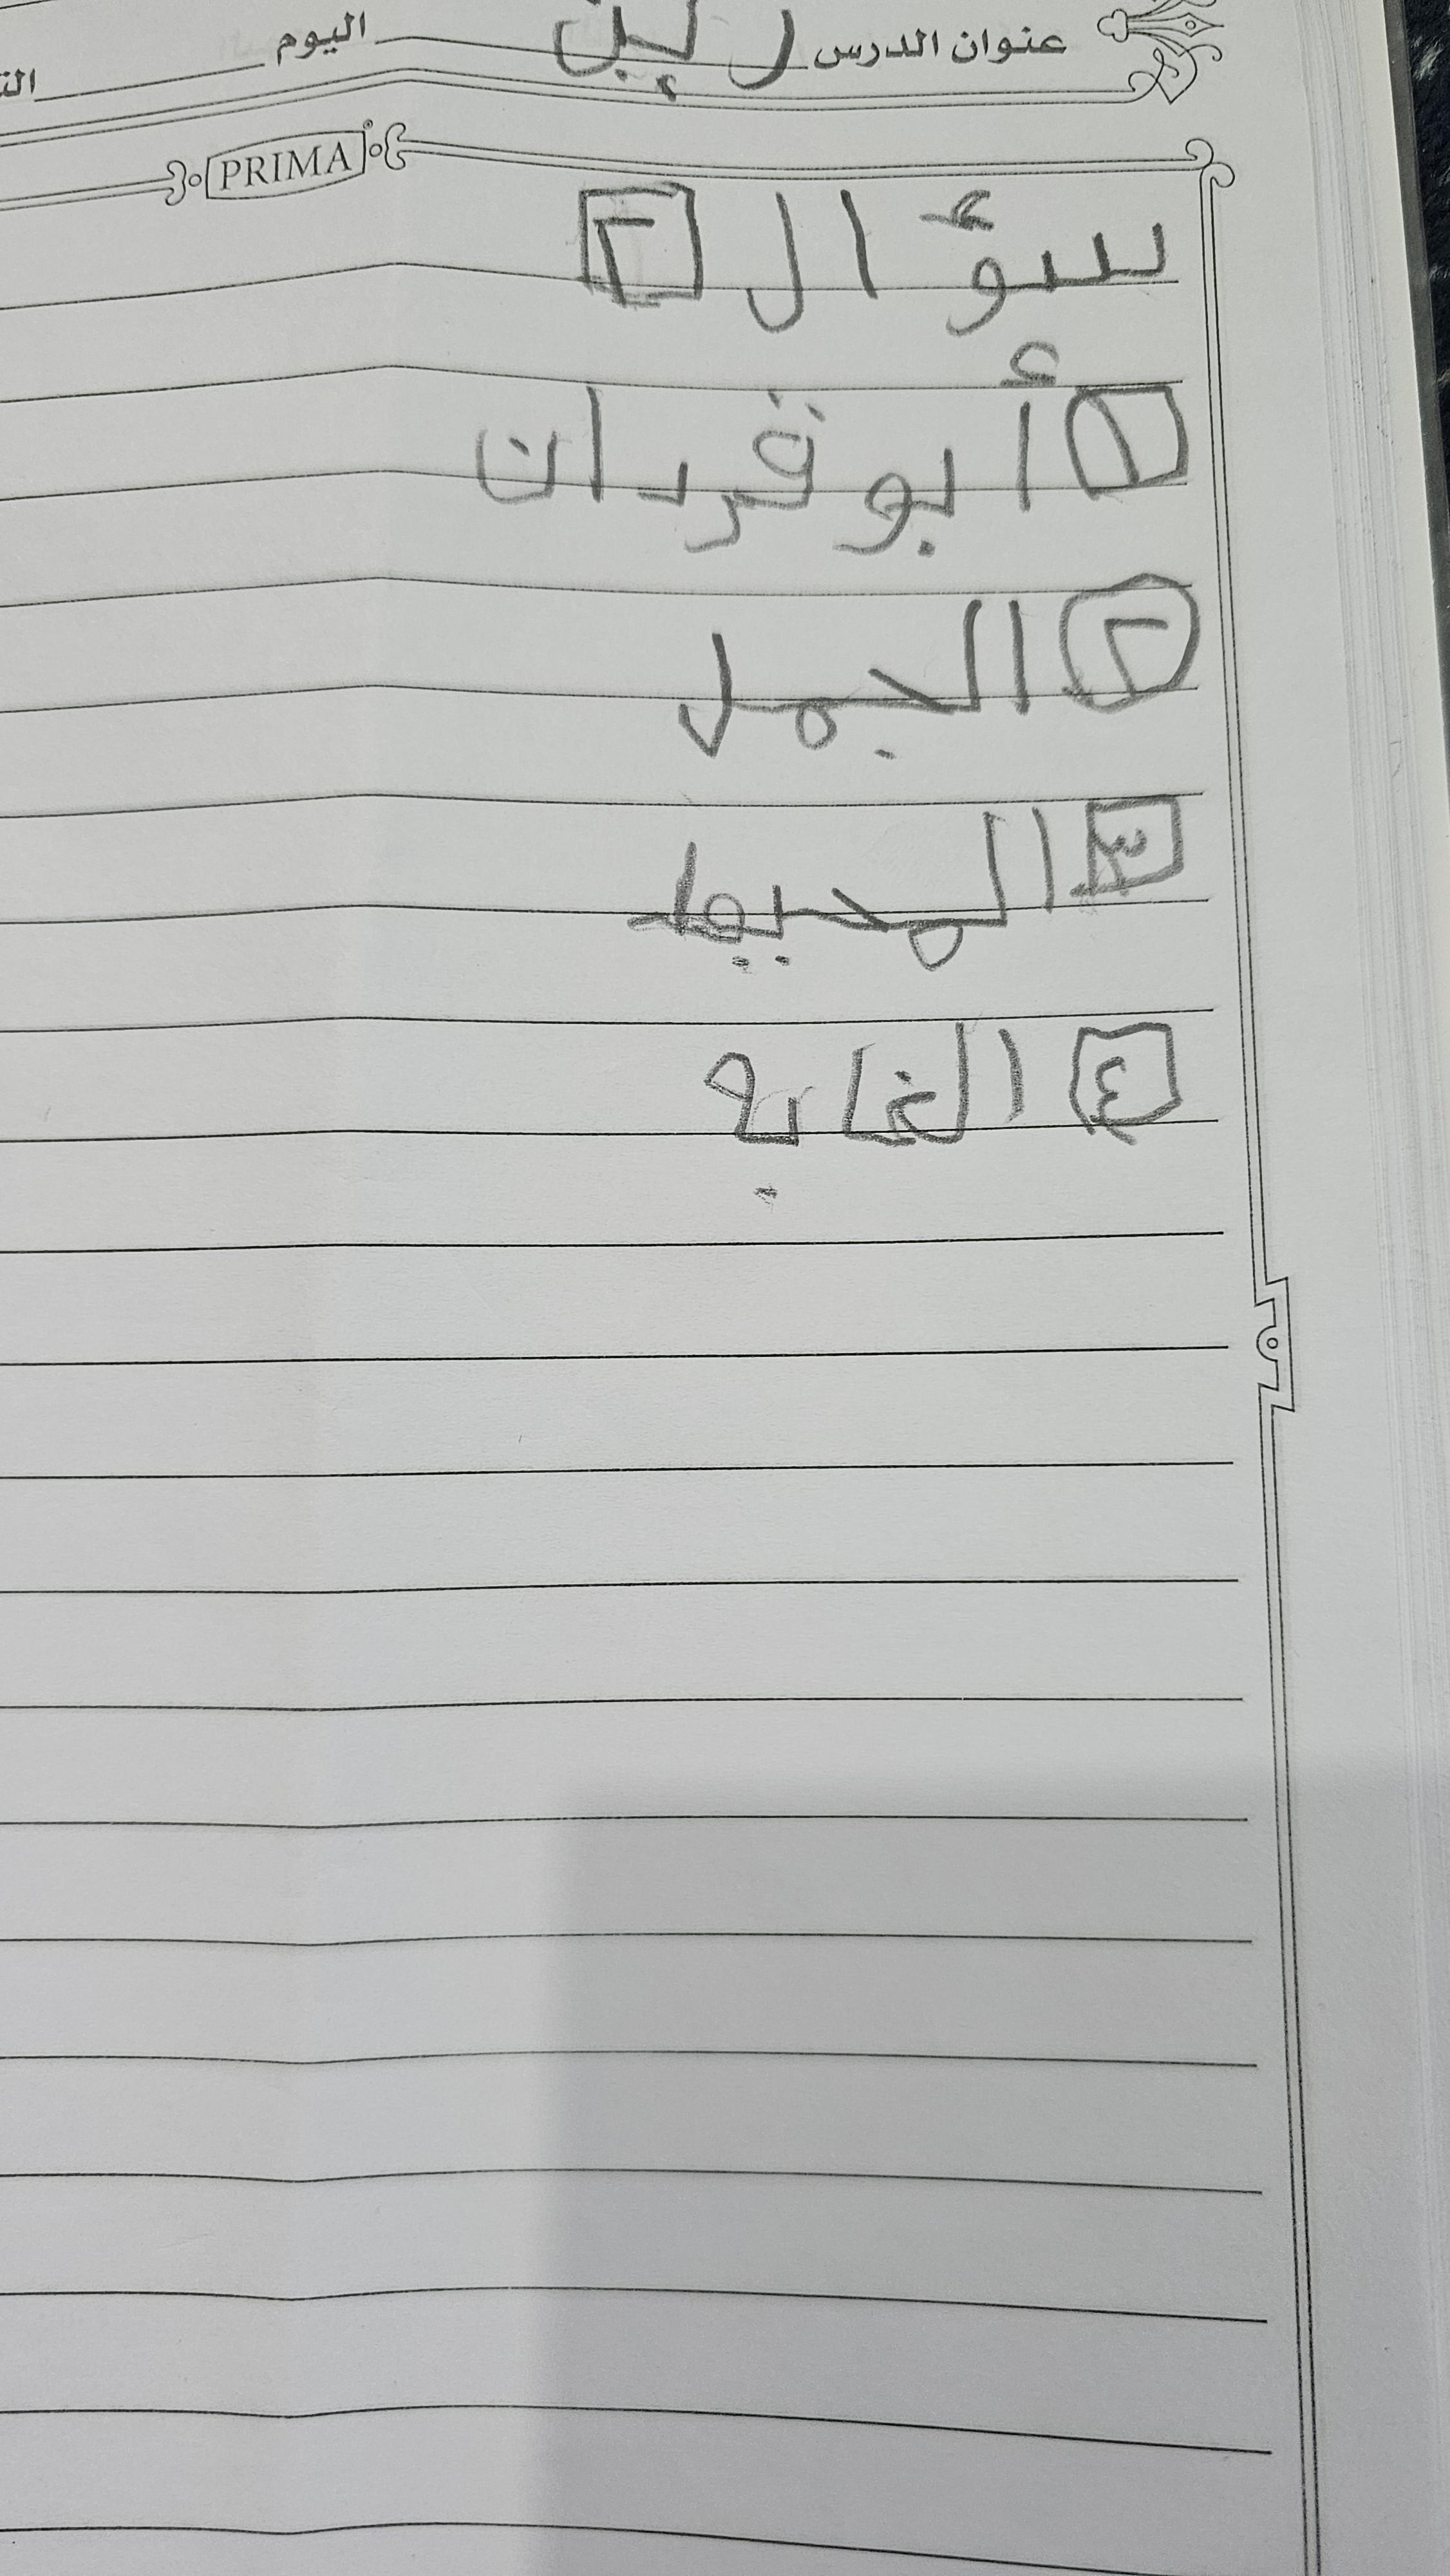 عنوان الدرس اليوم
PRIMA
سؤال ٢
١ أبو قردان
٢ الجمل
٣ المحيط
٤ الغابه